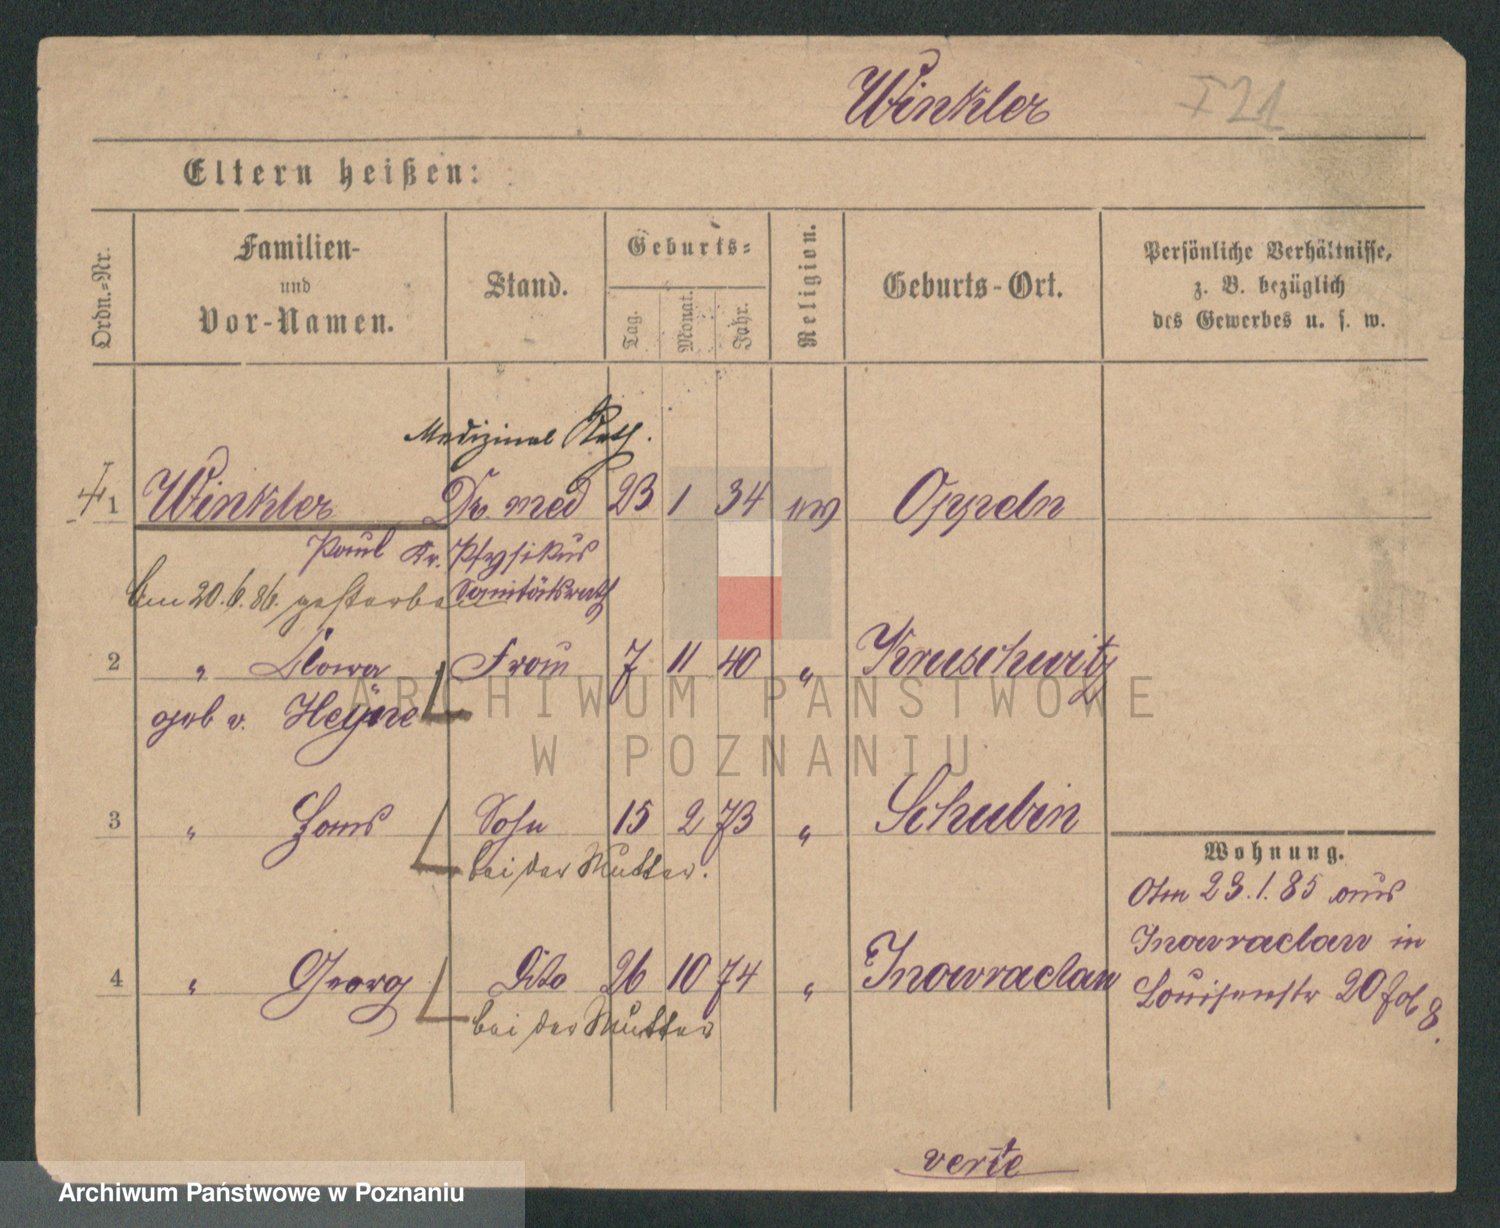 Winkler I 21
Eltern heißen:
Ordn.-Nr.
Familien-
und
Vor-Namen.
Stand.
Geburts-
Tag.
Monat.
Jahr.
Religion.
Geburts-Ort.
Persönliche Verhältnisse,
z. B. bezüglich
des Gewerbes u. s. w.
Medizinal Rath.
1 Winkler Dr. med 23 1 34 Oppeln
Paul Kr. Physikus
am 20.6.86. gestorben Sanitätsrath
2 " Clara Frau 7 11 40 " Kruschwitz
geb v. Heyne
3 " Hans Sohn 15 2 73 " Schubin
bei der Mutter.
4 " Georg Dito 26 10 74 " Inowraclaw
bei der Mutter
Wohnung.
Am 23.1.85 aus
Inowraclaw in
Louisenstr 20 fol 8.
verte
ARCHIWUM PAŃSTWOWE
W POZNANIU
Archiwum Państwowe w Poznaniu